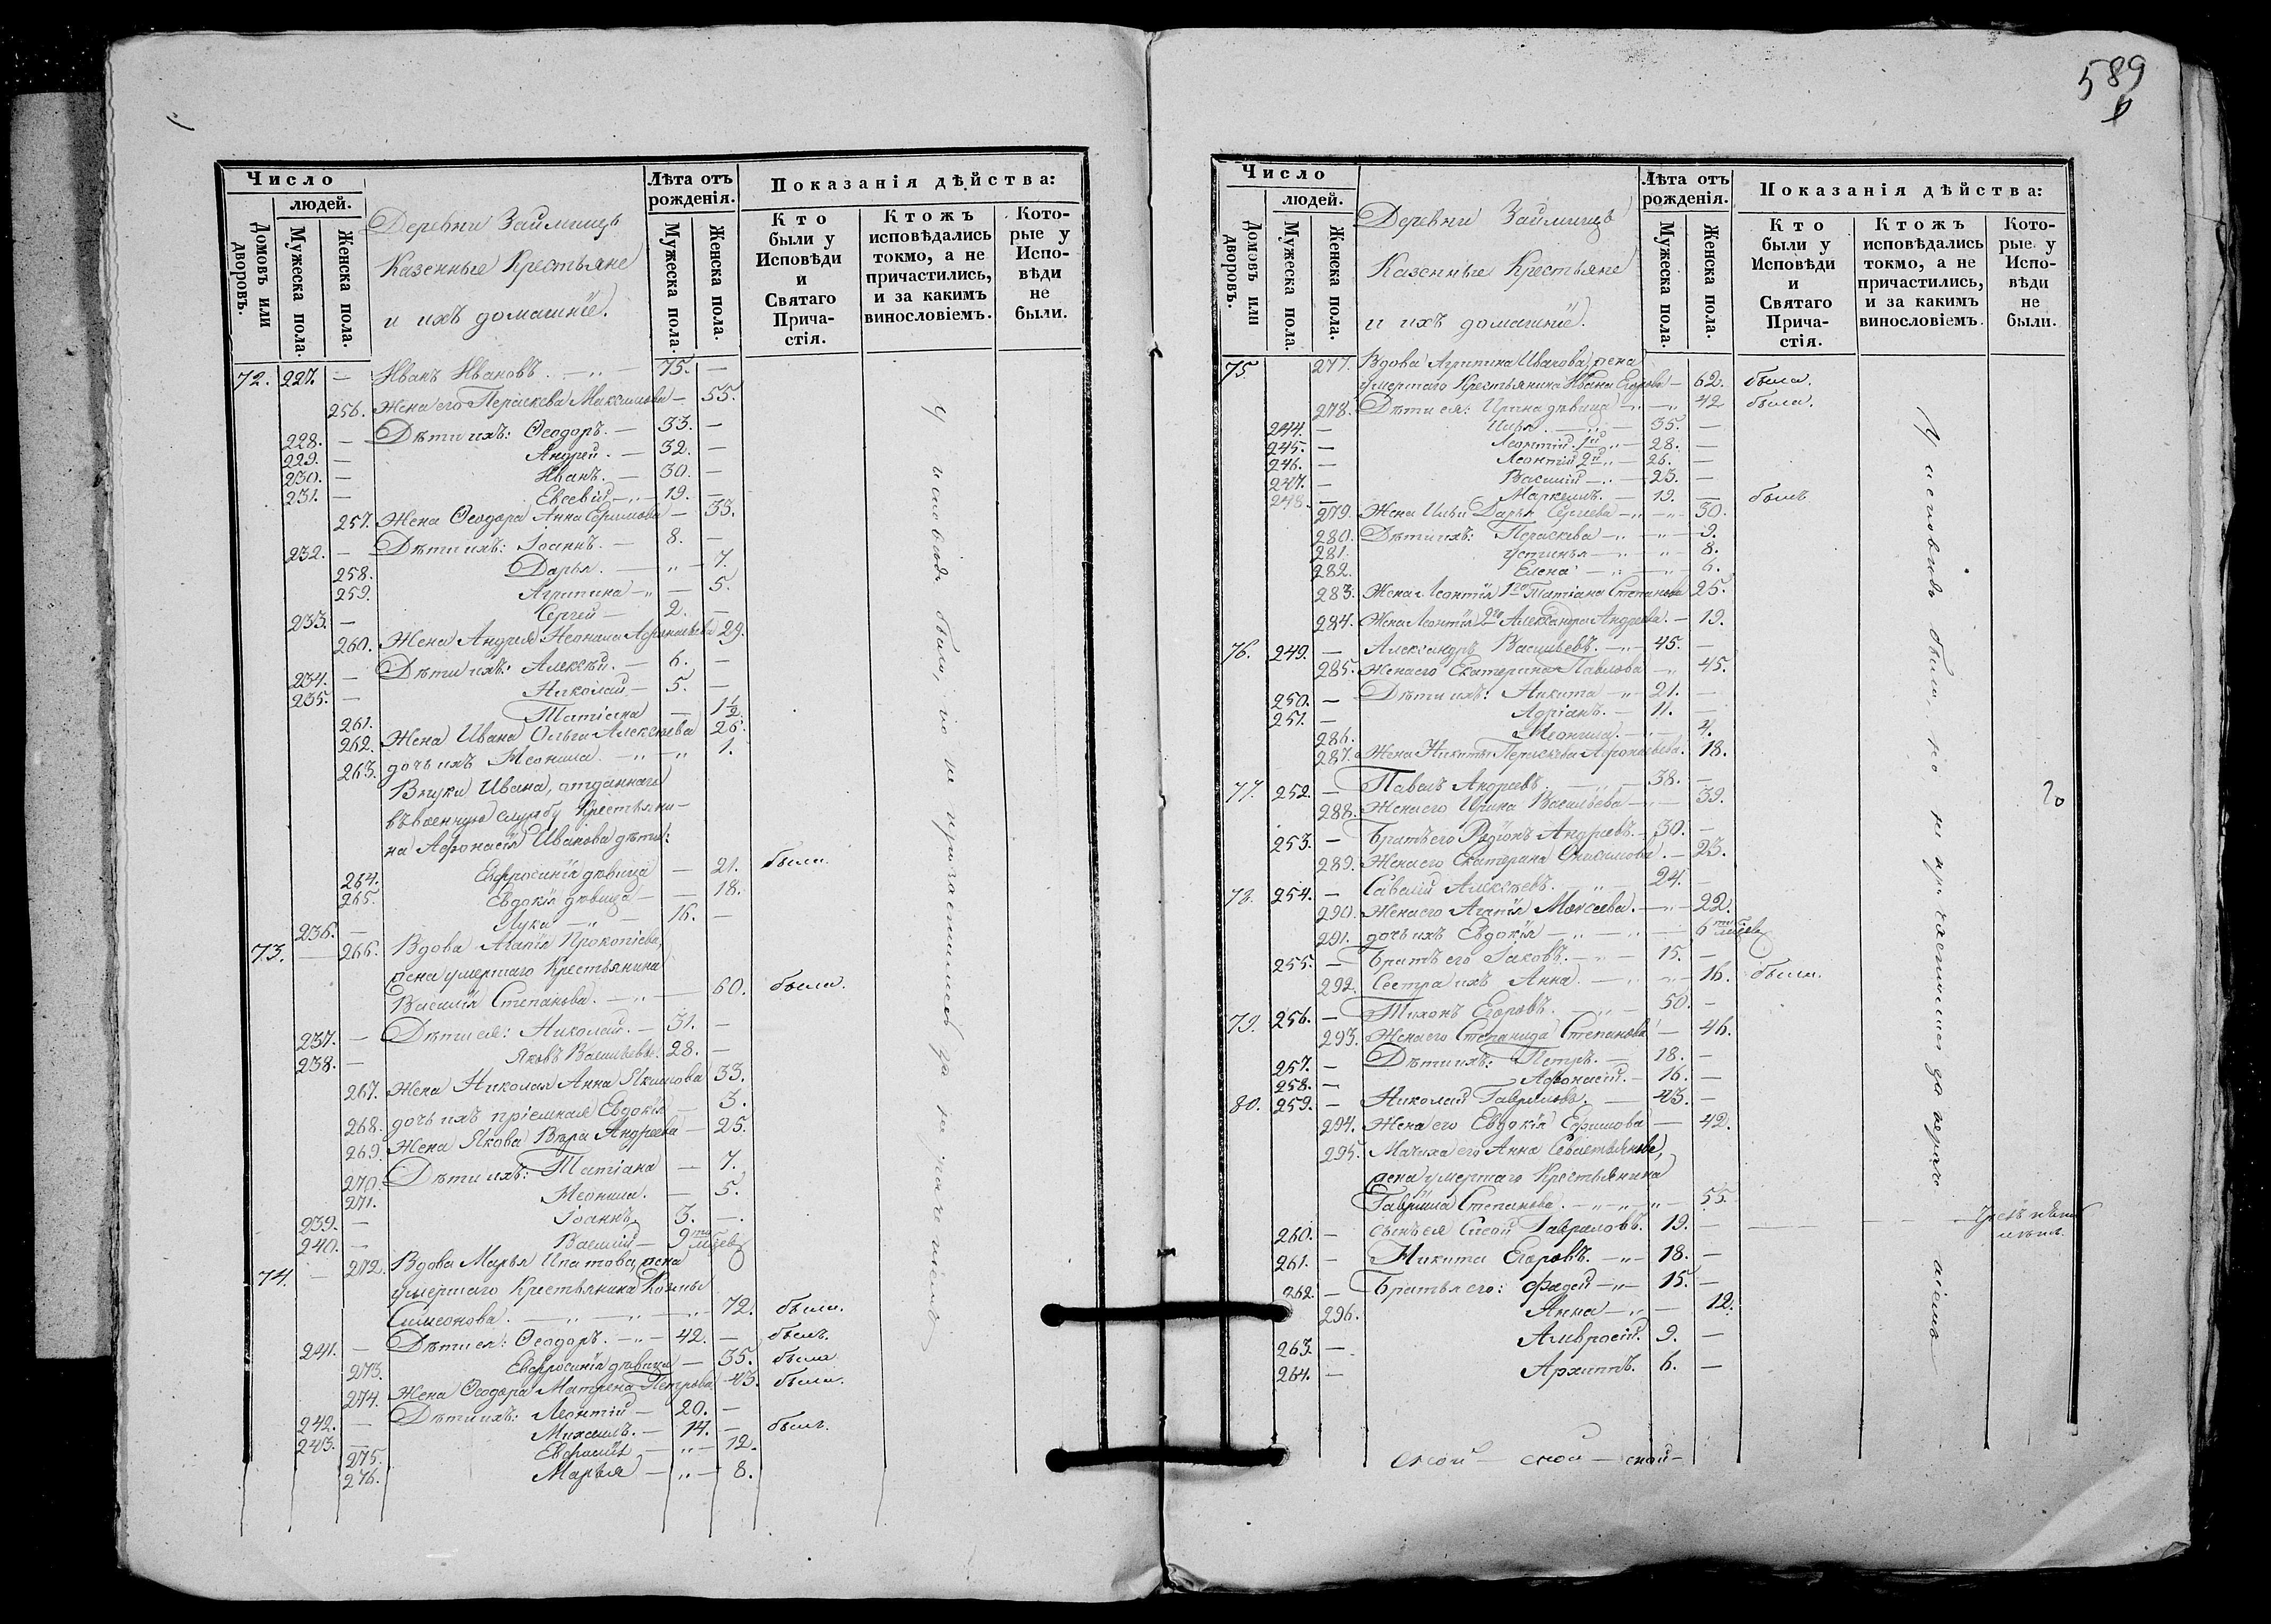 Число
людей.
Домовъ или дворовъ.
Мужеска пола.
Женска пола.
Деревни Займищъ
Казенные Крестьяне
и ихъ домашніе.
Лѣта отъ рожденія.
Мужеска пола.
Женска пола.
Показанія дѣйства:
Кто были у Исповѣди и Святаго Прича-стія.
Ктожъ исповѣдались токмо, а не причастились, и за какимъ винословіемъ.
Кото-рые у Испо-вѣди не были.
72. 227. — Иванъ Ивановъ. — „ — 75. —
256. Жена его Параскева Максимова — 55.
228. — Дѣти ихъ: Ѳеодоръ. — 33. —
229. — Андрей. — 32. —
230. — Иванъ. — 30. —
231. — Евсевій — „ — 19. —
257. Жена Ѳеодора Анна Ефимова — 33.
232. — Дѣти ихъ: Іоаннъ. — 8. —
258. Дарья. — „ — 7.
259. Агрипина — „ — 5.
233. — Сергей — 2. —
260. Жена Андрея Неонила Афонасьева 29.
234. — Дѣти ихъ: Алексѣй. — 6. —
235. — Николай — 5. —
261. Татіана — 1½
262. Жена Ивана Ольга Алексѣева 26.
263. дочь ихъ Неонила. — „ „ 1.
Внуки Ивана, отданнаго
въ военную службу Крестьяни-
на Афонасія Иванова дѣти:
264. Евфросинія дѣвица — 21. была.
265. Евдокія дѣвица — 18.
236. — Лука — „ — 16. —
73. — 266. Вдова Агапія Прокопіева,
жена умершаго Крестьянина
Василія Степанова. — „ — 60. была.
237. — Дѣти ея: Николай. — 31. —
238. — Яковъ Васильевъ. 28. —
267. Жена Николая Анна Якимова 33.
268. дочь ихъ пріемная Евдокія — 3.
269. Жена Якова Вѣра Андреева — 25.
270. Дѣти ихъ: Татіана — 7.
271. Неонила. — 5.
239. — Іоаннъ. 3. —
240. — Василій — 9ти мѣсяц.
74. — 272. Вдова Марья Ипатова, жена
умершаго Крестьянина Козмы
Симеонова. — „ — „ — „ — 72. была.
241. — Дѣти ея: Ѳеодоръ. — „ — 42. — былъ.
273. Евфросинія дѣвица — 35. была
274. Жена Ѳеодора Матрена Петрова 43. была.
242. — Дѣти ихъ: Леонтій — 20. —
243. — Михаилъ. — 14. — былъ.
275. Евфросинія — „ — 12.
276. Марья — „ — 8.
У исповѣди были, но не причастились за нерачениемъ
589
Число
людей.
Домовъ или дворовъ.
Мужеска пола.
Женска пола.
Деревни Займищъ
Казенные Крестьяне
и ихъ домашніе.
Лѣта отъ рожденія.
Мужеска пола.
Женска пола.
Показанія дѣйства:
Кто были у Исповѣди и Святаго Прича-стія.
Ктожъ исповѣдались токмо, а не причастились, и за какимъ винословіемъ.
Кото-рые у Испо-вѣди не были.
75. 277. Вдова Агрипина Иванова, жена
умершаго Крестьянина Ивана Егорова — 62. была.
278. Дѣти ея: Ирина дѣвица — „ — 42 была.
244. — Илья. — „ — 35. —
245. — Леонтій 1й „ — 28. —
246. — Леонтій 2й „ — 26. —
247. — Василій — „ — 23. —
248. — Маркеллъ. — 19. — былъ
279. Жена Ильи Дарья Сергеева — „ — 30.
280. Дѣти ихъ: Параскева — „ — „ — 9.
281. Устинья — „ — „ — 8.
282. Елена — „ — „ — 6.
283. Жена Леонтія 1го Татіана Степанова 25.
284. Жена Леонтія 2го Александра Андреева. — 19.
76. 249. — Александръ Васильевъ. — „ — 45. —
285. Жена его Екатерина Павлова — „ 45.
250. — Дѣти ихъ: Никита — „ — 21. —
251. — Адріанъ. — 11. —
286. Неонила. — „ — 4.
287. Жена Никиты Параскева Афонасьева. 18.
77. 252. — Павелъ Андреевъ. — 38. —
288. Жена его Ирина Васильева — „ — 39.
253. — Братъ его Родіонъ Андреевъ. — 30. —
289. Жена его Екатерина Онисимова. — 23.
78. 254. — Савелій Алексѣевъ. „ — 24. —
290. Жена его Агапія Моисеева. — „ — 22.
291. дочь ихъ Евдокія — „ — „ — 6ти мѣсяц.
255. — Братъ его Іаковъ. — „ — 15. —
292. Сестра ихъ Анна. — „ — „ — 16. была.
79. 256. — Тихонъ Егоровъ. — „ — 50. —
293. Жена его Степанида Степанова — 46.
257. — Дѣти ихъ: Петръ. — 18. —
258. — Афонасій. — 16. —
80. 259. — Николай Гавриловъ. — 43. —
294. Жена его Евдокія Ефимова — 42.
295. Мачиха его Анна Севастьянова,
жена умершаго Крестьянина
Гавріила Степанова. — „ — „ — 55.
260. — сынъ ея Сысой Гавриловъ. 19. —
261. — Никита Егоровъ. — „ — 18. —
262. — Братья его: Фадей — „ — 15. —
296. Анна — „ — 12.
263. — Амвросій. 9. —
264. — Архиппъ. 6. —
У исповѣди были, но не причастились за нерачениемъ